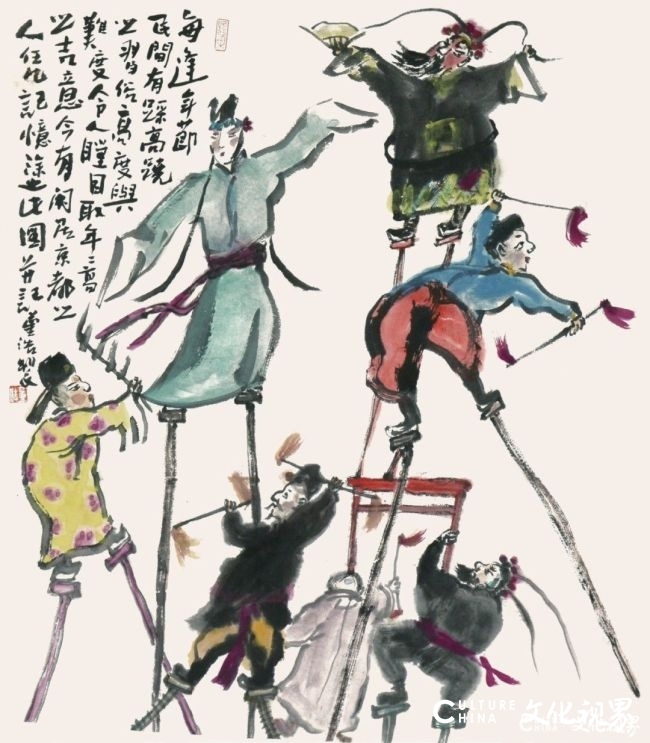 每逢年節
民間有踩高蹺
之習俗高度與
難度令人瞠目取年々高
之吉意今有閑居京都之
人凭記憶塗此圖并記董浩
CULTURE
CHINA
文化视界